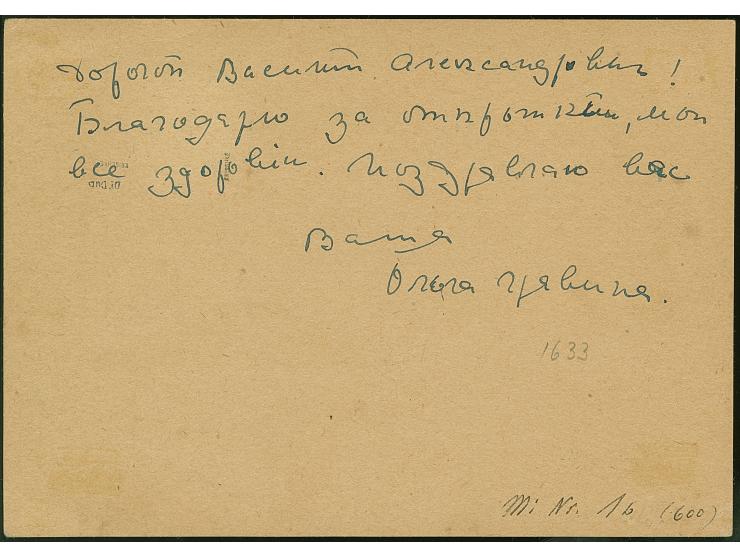 Дорогой Василий Александрович!
Благодарю за открытки, мои
все здоровы. Поздравляю вас
Ваша
Ольга
1633
Mi Nr. 1b (600)